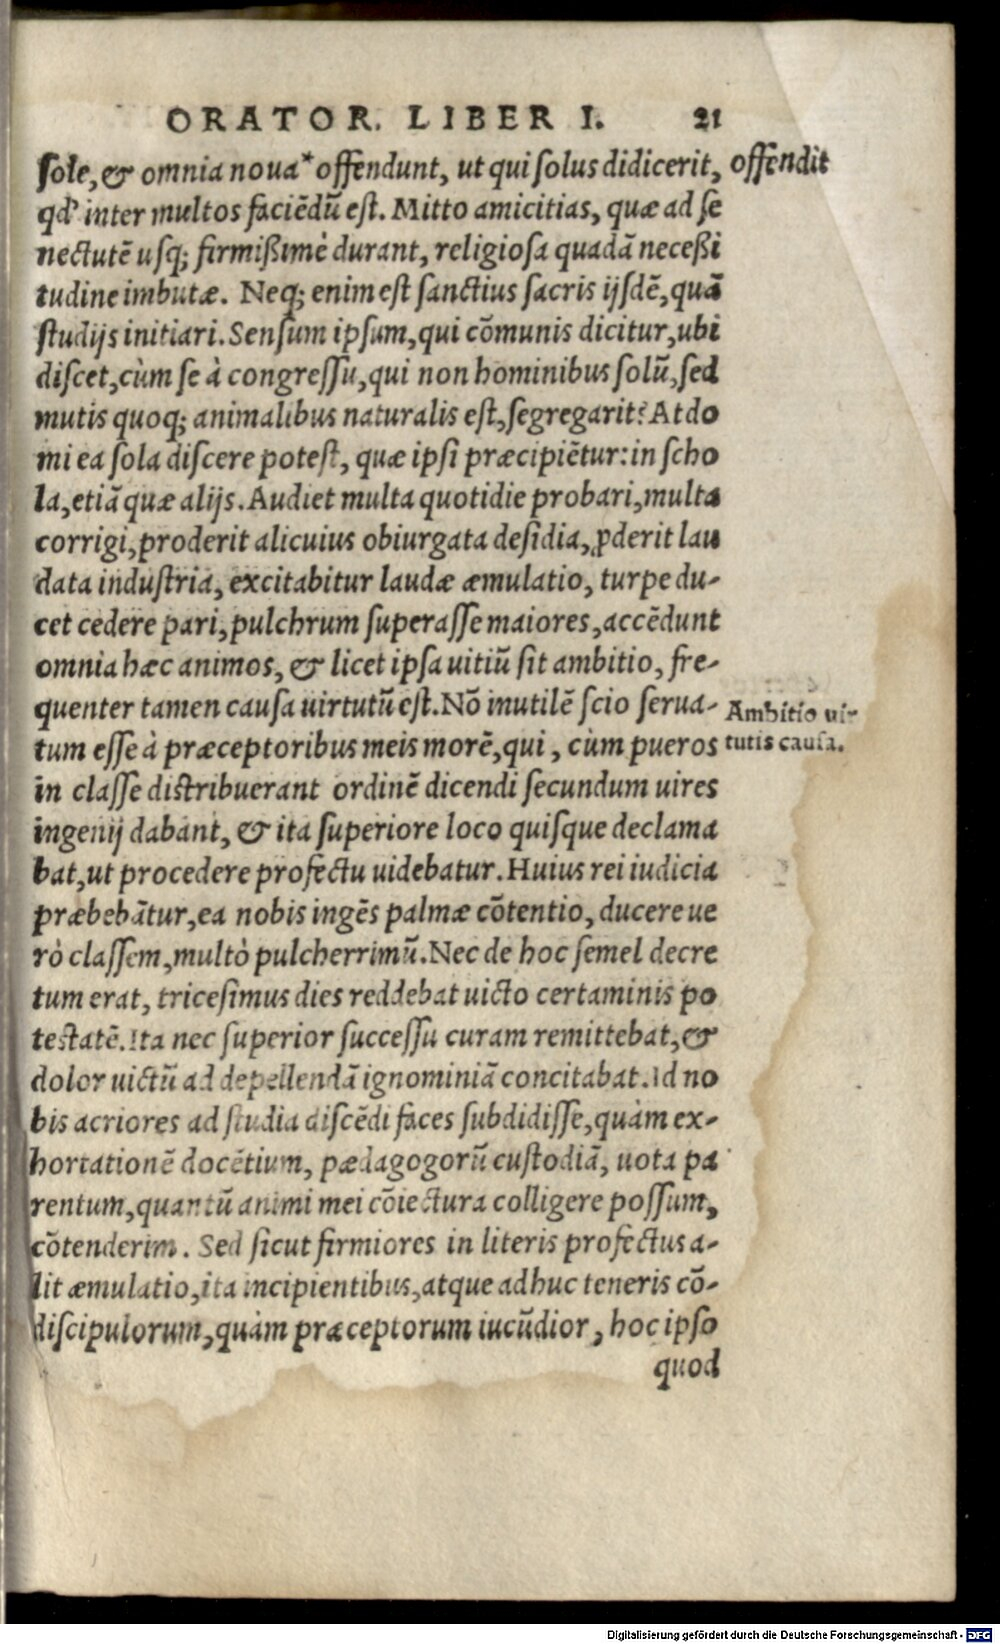 ORATOR. LIBER I. 21
sole, & omnia noua* offendunt, ut qui solus didicerit, offendit
qd' inter multos faciēdū est. Mitto amicitias, quæ ad se
nectutē usq; firmißimè durant, religiosa quadā neceßi
tudine imbutæ. Neq; enim est sanctius sacris ijsdē, quā
studijs initiari. Sensum ipsum, qui cōmunis dicitur, ubi
discet, cùm se à congressu, qui non hominibus solū, sed
mutis quoq; animalibus naturalis est, segregarit? At do
mi ea sola discere potest, quæ ipsi præcipiētur: in scho
la, etiā quæ alijs. Audiet multa quotidie probari, multa
corrigi, proderit alicuius obiurgata desidia, ꝓderit lau
data industria, excitabitur laudæ æmulatio, turpe du-
cet cedere pari, pulchrum superasse maiores, accēdunt
omnia hæc animos, & licet ipsa uitiū sit ambitio, fre-
quenter tamen causa uirtutū est. Nō inutilē scio serua-
Ambitio uir
tum esse à præceptoribus meis morē, qui, cùm pueros
tutis causa.
in classe distribuerant ordinē dicendi secundum uires
ingenij dabant, & ita superiore loco quisque declama
bat, ut procedere profectu uidebatur. Huius rei iudicia
præbebātur, ea nobis ingēs palmæ cōtentio, ducere ue
rò classem, multò pulcherrimū. Nec de hoc semel decre
tum erat, tricesimus dies reddebat uicto certaminis po
testatē. Ita nec superior successu curam remittebat, &
dolor uictū ad depellendā ignominiā concitabat. Id no
bis acriores ad studia discēdi faces subdidisse, quàm ex-
hortationē docētium, pædagogorū custodiā, uota pa
rentum, quantū animi mei cōiectura colligere possum,
cōtenderim. Sed sicut firmiores in literis profectus a-
lit æmulatio, ita incipientibus, atque adhuc teneris cō-
discipulorum, quàm præceptorum iucūdior, hoc ipso
quod
Digitalisierung gefördert durch die Deutsche Forschungsgemeinschaft - DFG